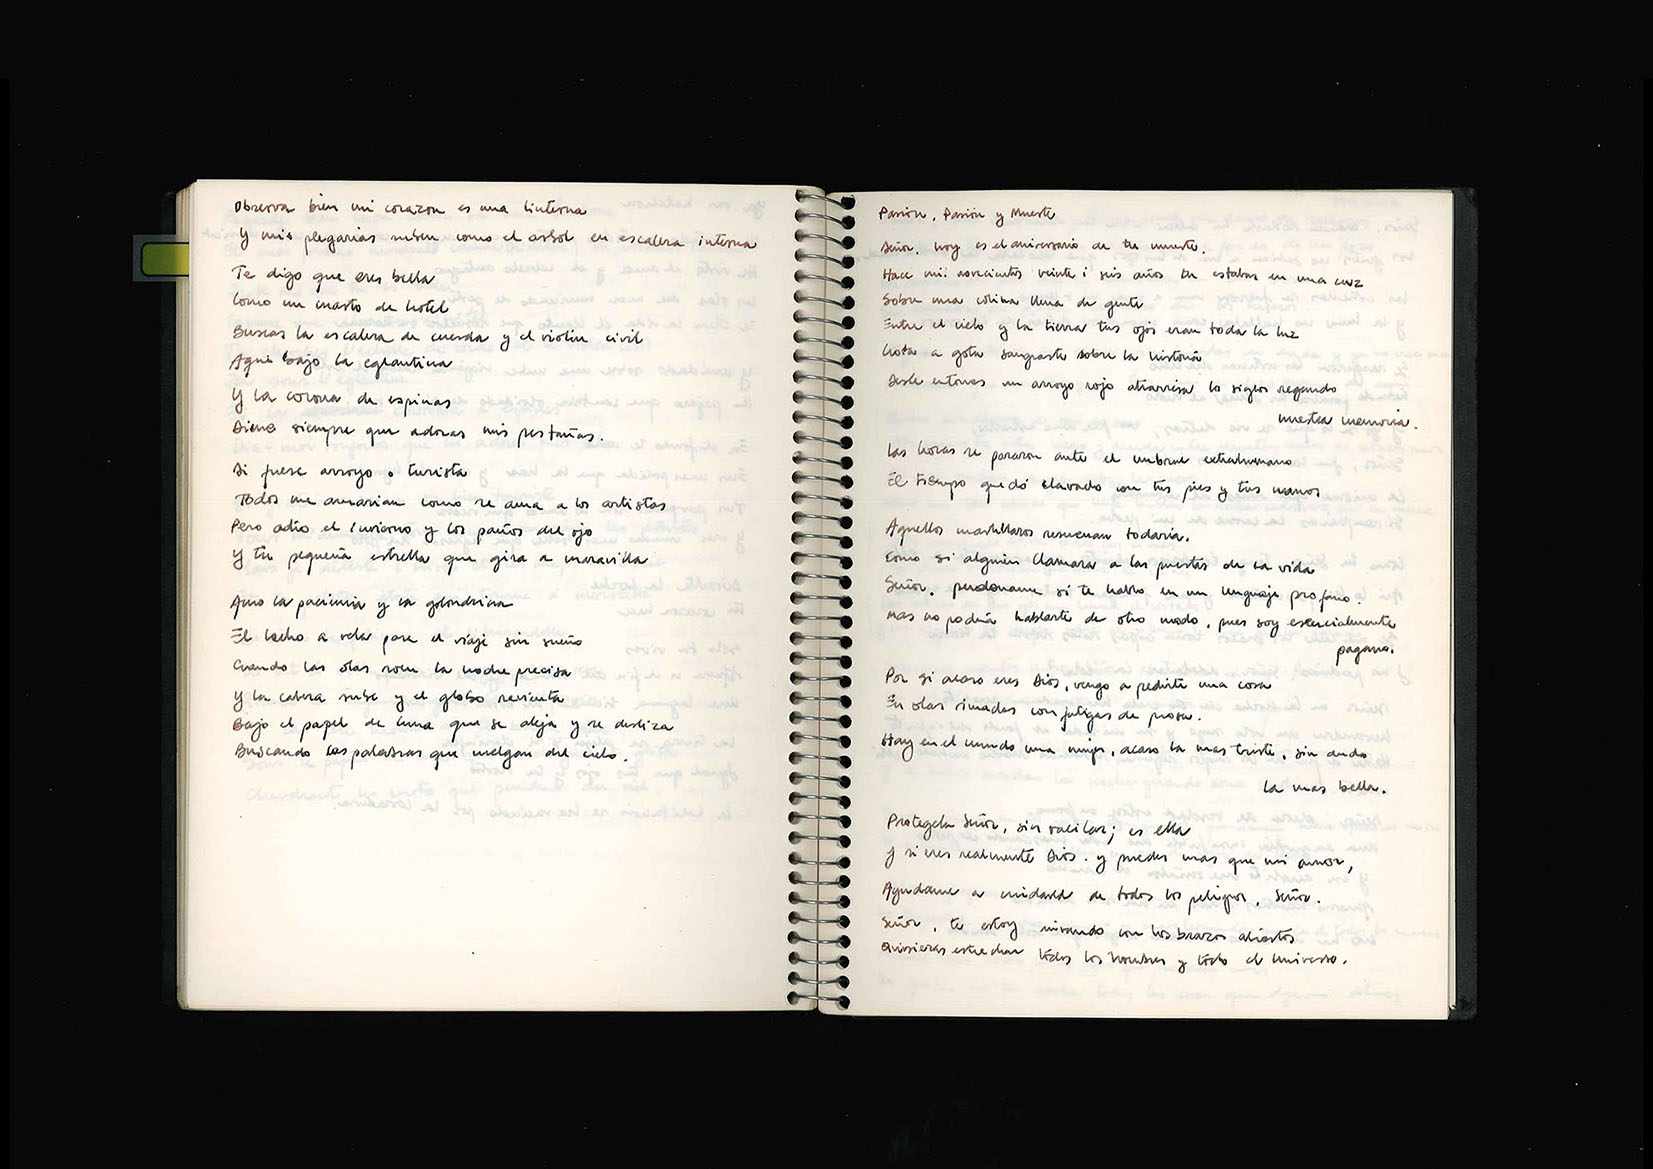 Observa bien mi corazon es una linterna
Y mis plegarias suben como el arbol en escalera interna
Te digo que eres bella
Como un cuarto de hotel
Buscas la escalera de cuerda y el violin civil
Aqui bajo la eglantina
Y la corona de espinas
Dime siempre que adoras mis pestañas.
Si fuese arroyo o turista
Todos me amarian como se ama a los artistas
Pero adio el invierno y los paños del ojo
Y tu pequeña estrella que gira a maravilla
Amo la paciencia y la golondrina
El lecho a vela para el viaje sin sueño
Cuando las olas roen la noche precisa
Y la cabeza sube y el globo revienta
Bajo el papel de luna que se aleja y se desliza
Buscando las palabras que cuelgan del cielo.
Pasion, Pasión y Muerte
Señor, hoy es el aniversario de tu muerte.
Hace mil novecientos veinte i seis años tu estabas en una cruz
Sobre una colina llena de gente
Entre el cielo y la tierra tus ojos eran toda la luz
Gota a gota sangraste sobre la historia
Desde entonces un arroyo rojo atraviesa los siglos regando
nuestra memoria.
Las horas se pararon ante el umbral extrahumano
El tiempo quedó clavado con tus pies y tus manos
Aquellos martillazos resuenan todavía.
Como si alguien llamara a las puertas de la vida
Señor, perdoname si te hablo en un lenguaje profano.
mas no podria hablarte de otro modo, pues soy esencialmente
pagano.
Por si acaso eres Dios, vengo a pedirte una cosa
En olas rimadas con fatigas de prosa.
Hay en el mundo una mujer, acaso la mas triste, sin duda
la mas bella.
Protegela Señor, sin vacilar; es ella
Y si eres realmente Dios. y puedes mas que mi amor,
Ayudame a cuidarla de todos los peligros, Señor.
Señor, te estoy mirando con los brazos abiertos
Quisieras estrechar todos los hombres y todo el universo.